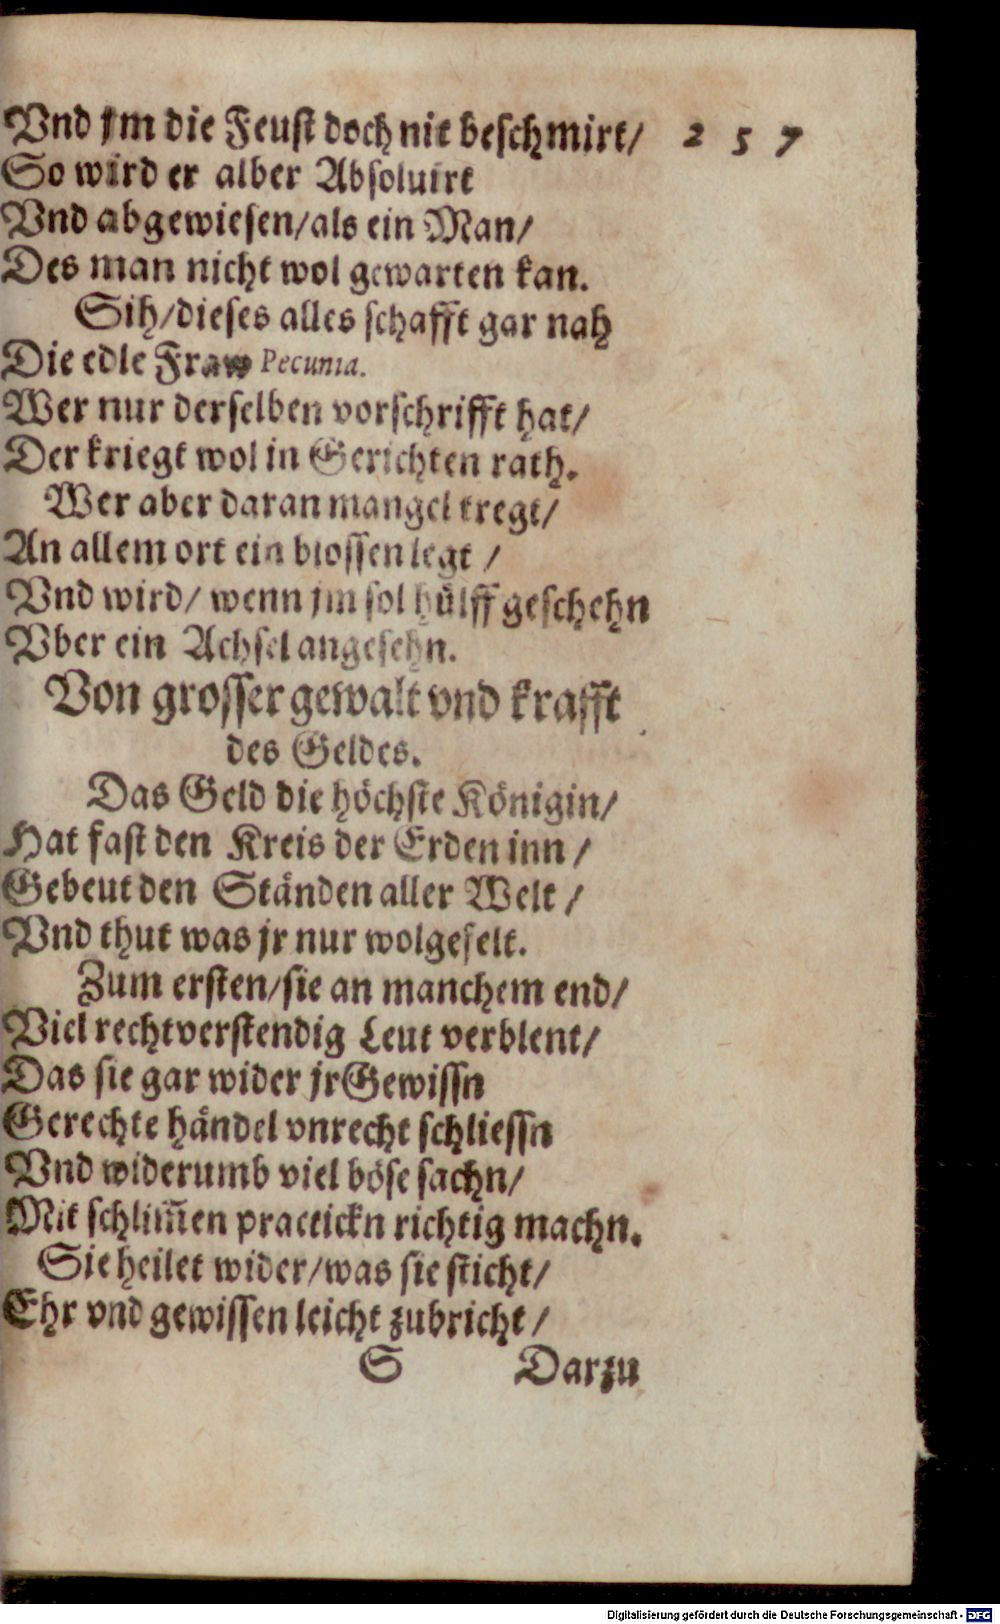 Vnd jm die Feust doch nit beschmirt/ 257
So wird er alber Absoluirt
Vnd abgewiesen/als ein Man/
Des man nicht wol gewarten kan.
Sih/dieses alles schafft gar nah
Die edle Fraw Pecunia.
Wer nur derselben vorschrifft hat/
Der kriegt wol in Gerichten rath.
Wer aber daran mangel tregt/
An allem ort ein blossen legt /
Vnd wird/ wenn jm sol hülff geschehn
Vber ein Achsel angesehn.
Von grosser gewalt vnd krafft
des Geldes.
Das Geld die höchste Königin/
Hat fast den Kreis der Erden inn /
Gebeut den Ständen aller Welt /
Vnd thut was jr nur wolgefelt.
Zum ersten/sie an manchem end/
Viel rechtverstendig Leut verblent/
Das sie gar wider jr Gewissn
Gerechte händel vnrecht schliessn
Vnd widerumb viel böse sachn/
Mit schlim̃en practickn richtig machn.
Sie heilet wider/was sie sticht/
Ehr vnd gewissen leicht zubricht /
S Darzu
Digitalisierung gefördert durch die Deutsche Forschungsgemeinschaft - DFG